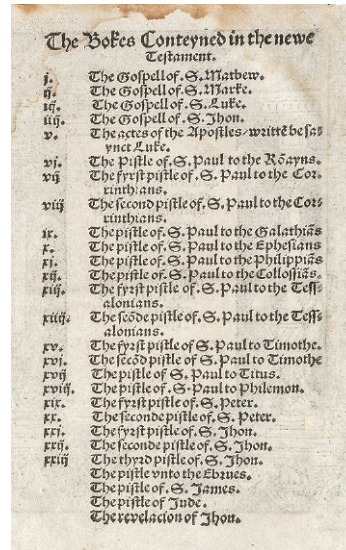 The Bokes Conteyned in the newe
Testament.
j. The Gospell of .S. Mathew.
ij. The Gospell of .S. Marke.
iij. The Gospell of .S. Luke.
iiij. The Gospell of .S. Jhon.
v. The actes of the Apostles/ writtē be say
ynct Luke.
vj. The Pistle of .S. Paul to the Rōayns.
vij The fyrst pistle of .S. Paul to the Cor-
rinthians.
viij The second pistle of .S. Paul to the Cor-
rinthians.
ix. The pistle of .S. Paul to the Galathiās
x. The pistle of .S. Paul to the Ephesians
xj. The pistle of .S. Paul to the Philippiās
xij. The pistle of .S. Paul to the Collossiās.
xiij. The fyrst pistle of .S. Paul to the Tess-
alonians.
xiiij. The secōde pistle of .S. Paul to the Tess-
alonians.
xv. The fyrst pistle of S. Paul to Timothe.
xvj. The secōd pistle of .S. Paul to Timothe
xvij The pistle of .S. Paul to Titus.
xviij. The pistle of .S. Paul to Philemon.
xix. The fyrst pistle of .S. Peter.
xx. The seconde pistle of .S. Peter.
xxj. The fyrst pistle of .S. Jhon.
xxij. The seconde pistle of .S. Jhon.
xxiij The thyrd pistle of .S. Jhon.
The pistle vnto the Ebrues.
The pistle of .S. James.
The pistle of Jude.
The revelacion of Jhon.